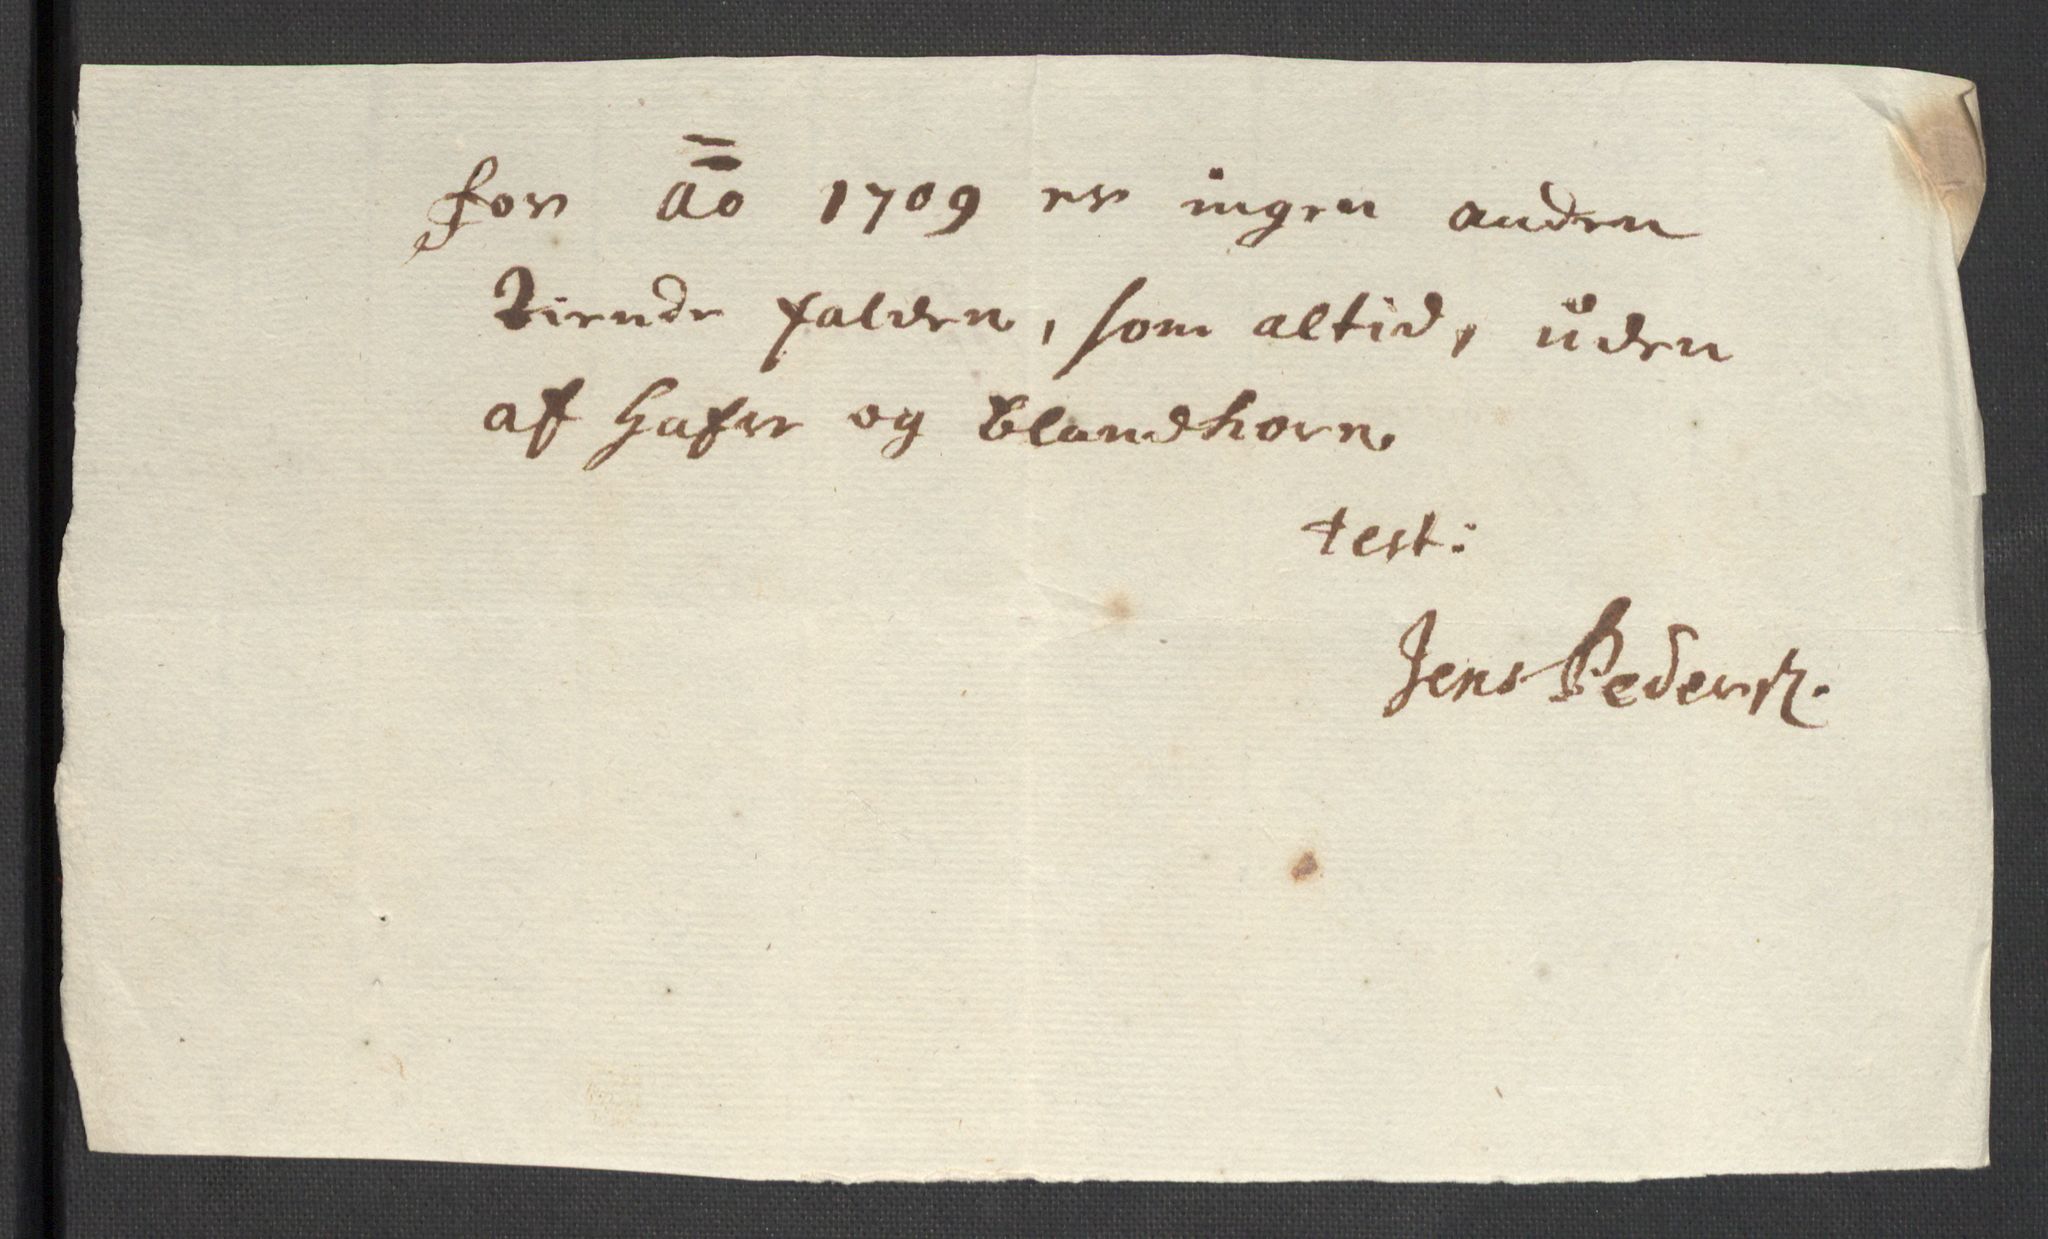 for Ao 1709 er ingen anden
Tiende falden, som altid, uden
af Hafer og blandkorn
test:
Jens Pederss.